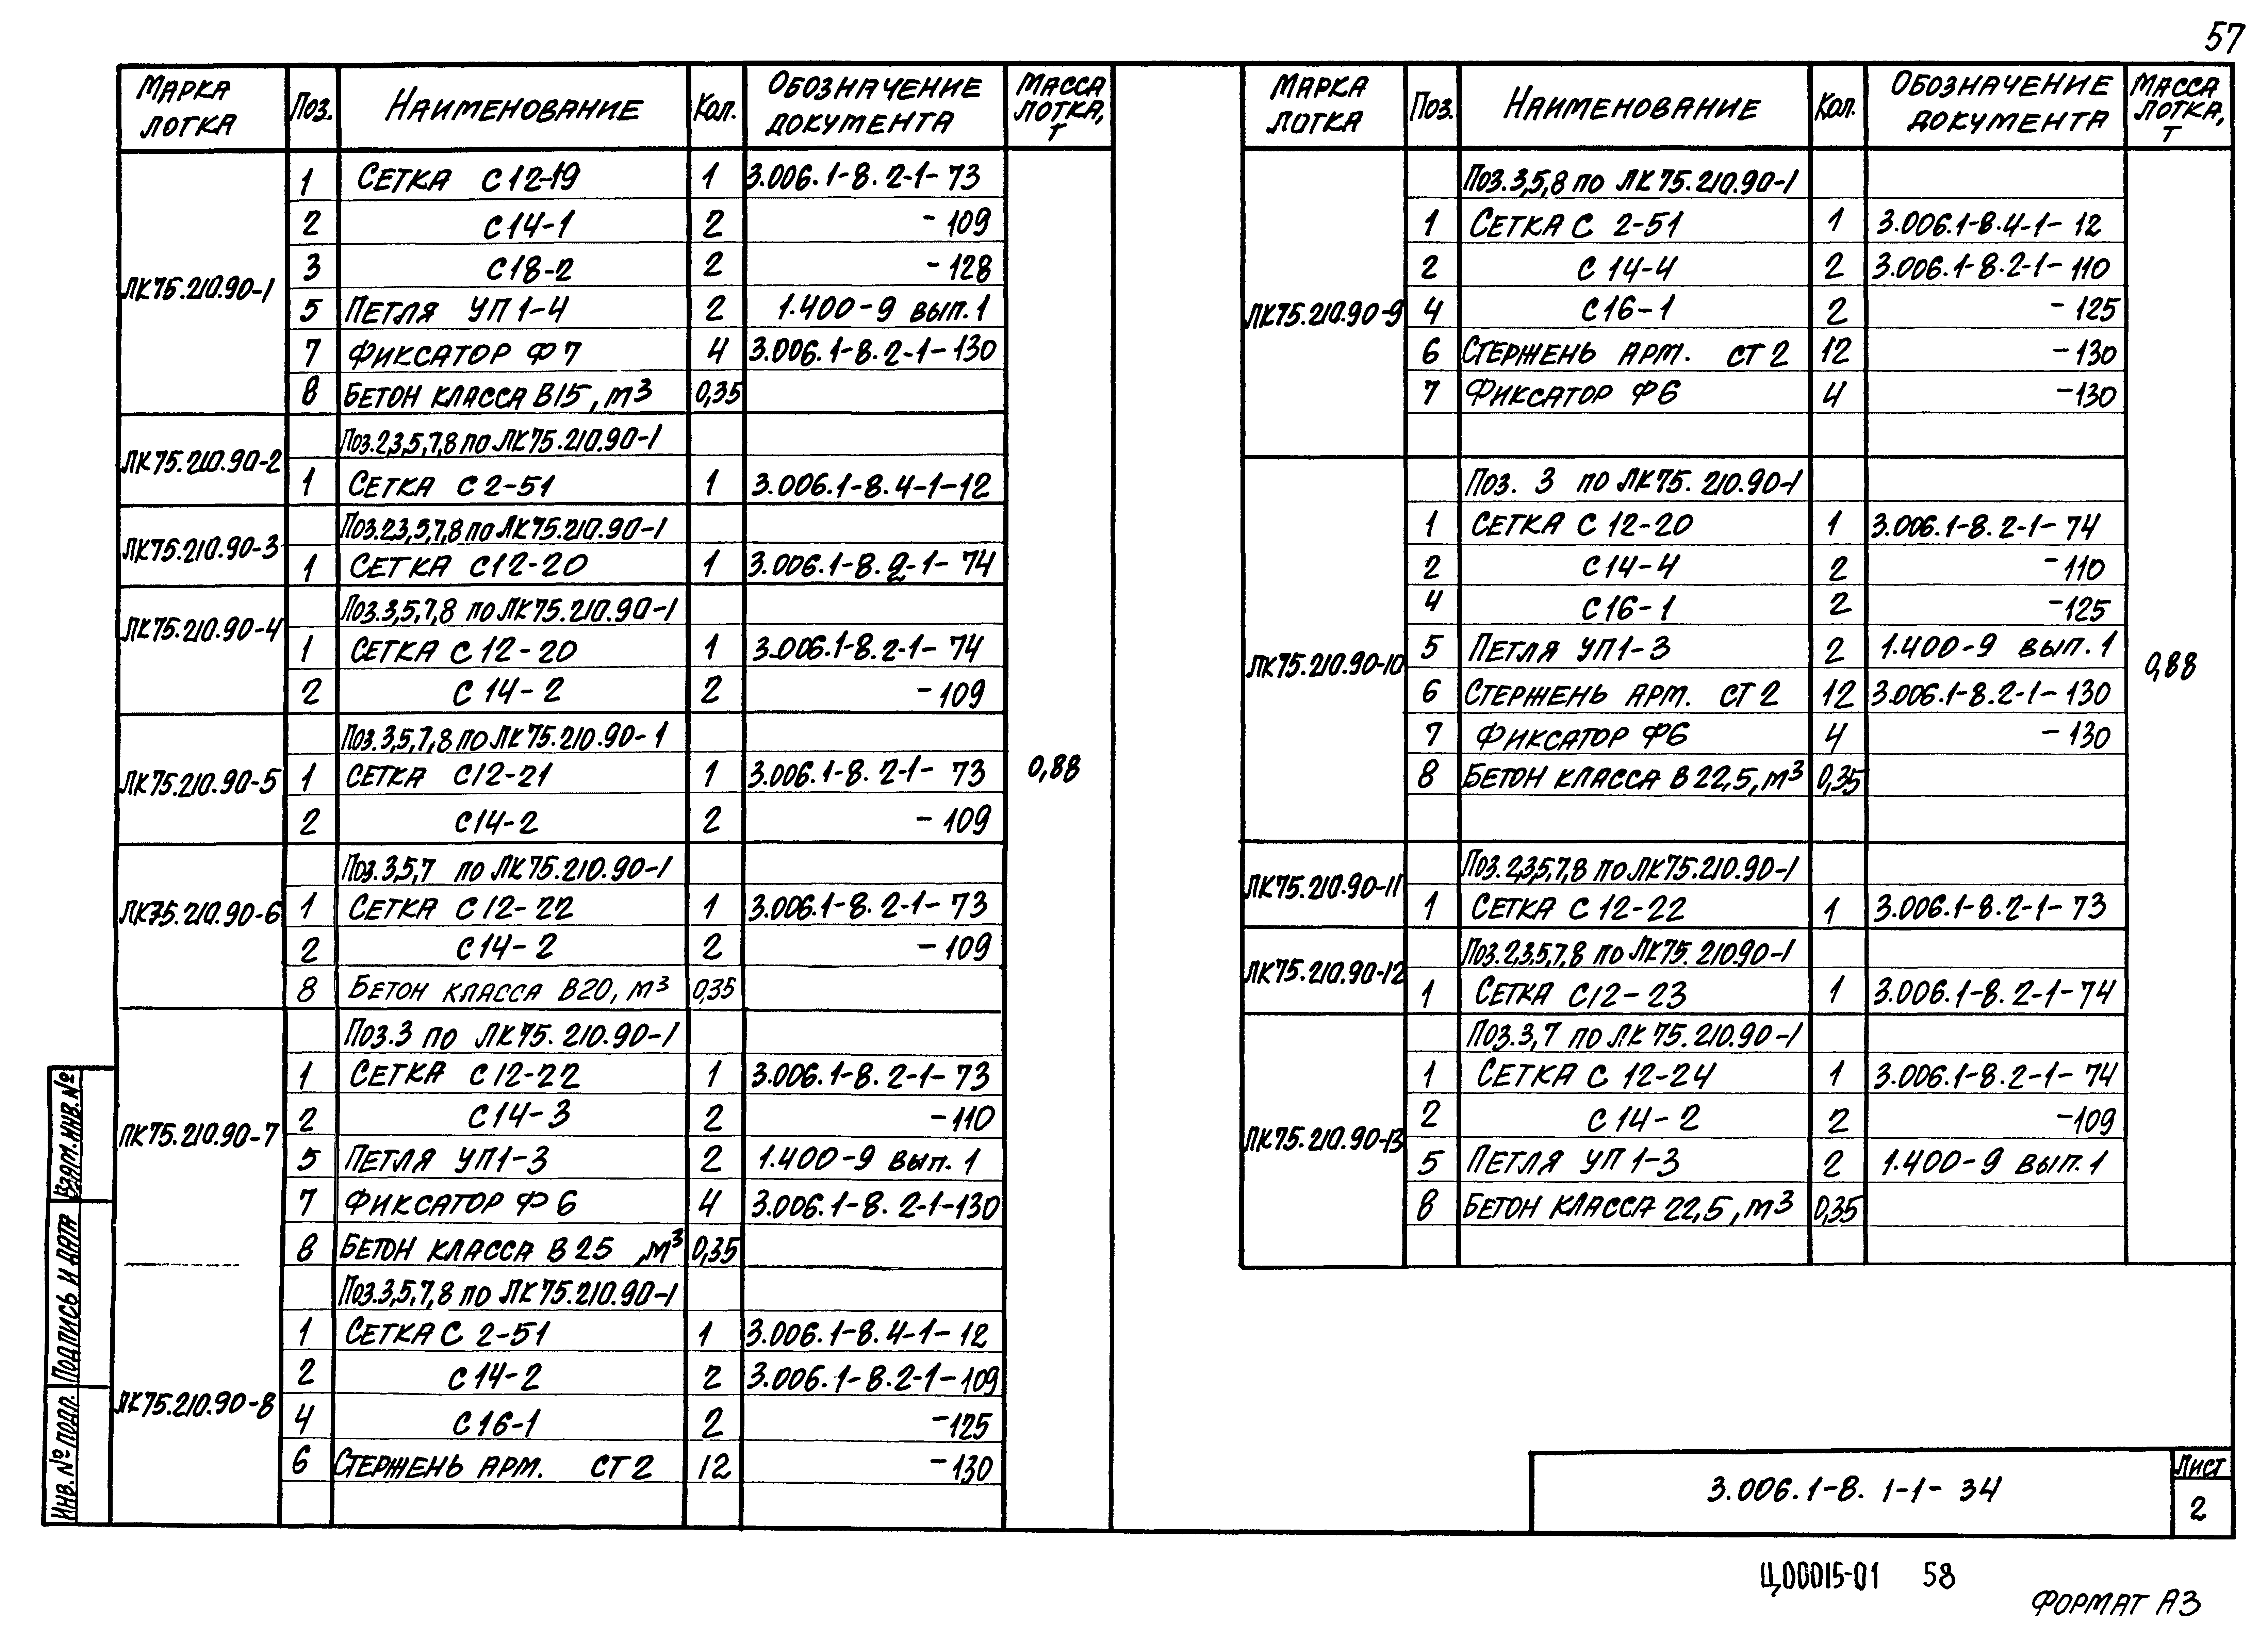 57
МАРКА ЛОТКА | ПОЗ. | НАИМЕНОВАНИЕ | КОЛ. | ОБОЗНАЧЕНИЕ ДОКУМЕНТА | МАССА ЛОТКА, Т
ЛК75.210.90-1
1 СЕТКА С12-19 1 3.006.1-8.2-1-73
2 С14-1 2 -109
3 С18-2 2 -128
5 ПЕТЛЯ УП1-4 2 1.400-9 ВЫП.1
7 ФИКСАТОР Ф7 4 3.006.1-8.2-1-130
8 БЕТОН КЛАССА В15, м³ 0,35
ЛК75.210.90-2
Поз.2,3,5,7,8 по ЛК75.210.90-1
1 СЕТКА С2-51 1 3.006.1-8.4-1-12
ЛК75.210.90-3
Поз.2,3,5,7,8 по ЛК75.210.90-1
1 СЕТКА С12-20 1 3.006.1-8.2-1-74
ЛК75.210.90-4
Поз.3,5,7,8 по ЛК75.210.90-1
1 СЕТКА С12-20 1 3.006.1-8.2-1-74
2 С14-2 2 -109
ЛК75.210.90-5
Поз.3,5,7,8 по ЛК75.210.90-1
1 СЕТКА С12-21 1 3.006.1-8.2-1-73
2 С14-2 2 -109
0,88
ЛК75.210.90-6
Поз.3,5,7 по ЛК75.210.90-1
1 СЕТКА С12-22 1 3.006.1-8.2-1-73
2 С14-2 2 -109
8 БЕТОН КЛАССА В20, м³ 0,35
ЛК75.210.90-7
Поз.3 по ЛК75.210.90-1
1 СЕТКА С12-22 1 3.006.1-8.2-1-73
2 С14-3 2 -110
5 ПЕТЛЯ УП1-3 2 1.400-9 ВЫП.1
7 ФИКСАТОР Ф6 4 3.006.1-8.2-1-130
8 БЕТОН КЛАССА В25, м³ 0,35
ЛК75.210.90-8
Поз.3,5,7,8 по ЛК75.210.90-1
1 СЕТКА С 2-51 1 3.006.1-8.4-1-12
2 С14-2 2 3.006.1-8.2-1-109
4 С16-1 2 -125
6 СТЕРЖЕНЬ АРМ. СТ2 12 -130
МАРКА ЛОТКА | ПОЗ. | НАИМЕНОВАНИЕ | КОЛ. | ОБОЗНАЧЕНИЕ ДОКУМЕНТА | МАССА ЛОТКА, Т
ЛК75.210.90-9
Поз.3,5,8 по ЛК75.210.90-1
1 СЕТКА С 2-51 1 3.006.1-8.4-1-12
2 С14-4 2 3.006.1-8.2-1-110
4 С16-1 2 -125
6 СТЕРЖЕНЬ АРМ. СТ2 12 -130
7 ФИКСАТОР Ф6 4 -130
ЛК75.210.90-10
Поз. 3 по ЛК75.210.90-1
1 СЕТКА С12-20 1 3.006.1-8.2-1-74
2 С14-4 2 -110
4 С16-1 2 -125
5 ПЕТЛЯ УП1-3 2 1.400-9 ВЫП.1
6 СТЕРЖЕНЬ АРМ. СТ2 12 3.006.1-8.2-1-130
7 ФИКСАТОР Ф6 4 -130
8 БЕТОН КЛАССА В22,5, м³ 0,35
0,88
ЛК75.210.90-11
Поз.2,3,5,7,8 по ЛК75.210.90-1
1 СЕТКА С12-22 1 3.006.1-8.2-1-73
ЛК75.210.90-12
Поз.2,3,5,7,8 по ЛК75.21090-1
1 СЕТКА С12-23 1 3.006.1-8.2-1-74
ЛК75.210.90-13
Поз.3,7 по ЛК75.210.90-1
1 СЕТКА С12-24 1 3.006.1-8.2-1-74
2 С14-2 2 -109
5 ПЕТЛЯ УП1-3 2 1.400-9 ВЫП.1
8 БЕТОН КЛАССА 22,5, м³ 0,35
ВЗАМ.ИНВ.№
ПОДПИСЬ И ДАТА
ИНВ.№ ПОДЛ.
3.006.1-8.1-1-34
ЛИСТ
2
Ц00015-01 58
ФОРМАТ А3